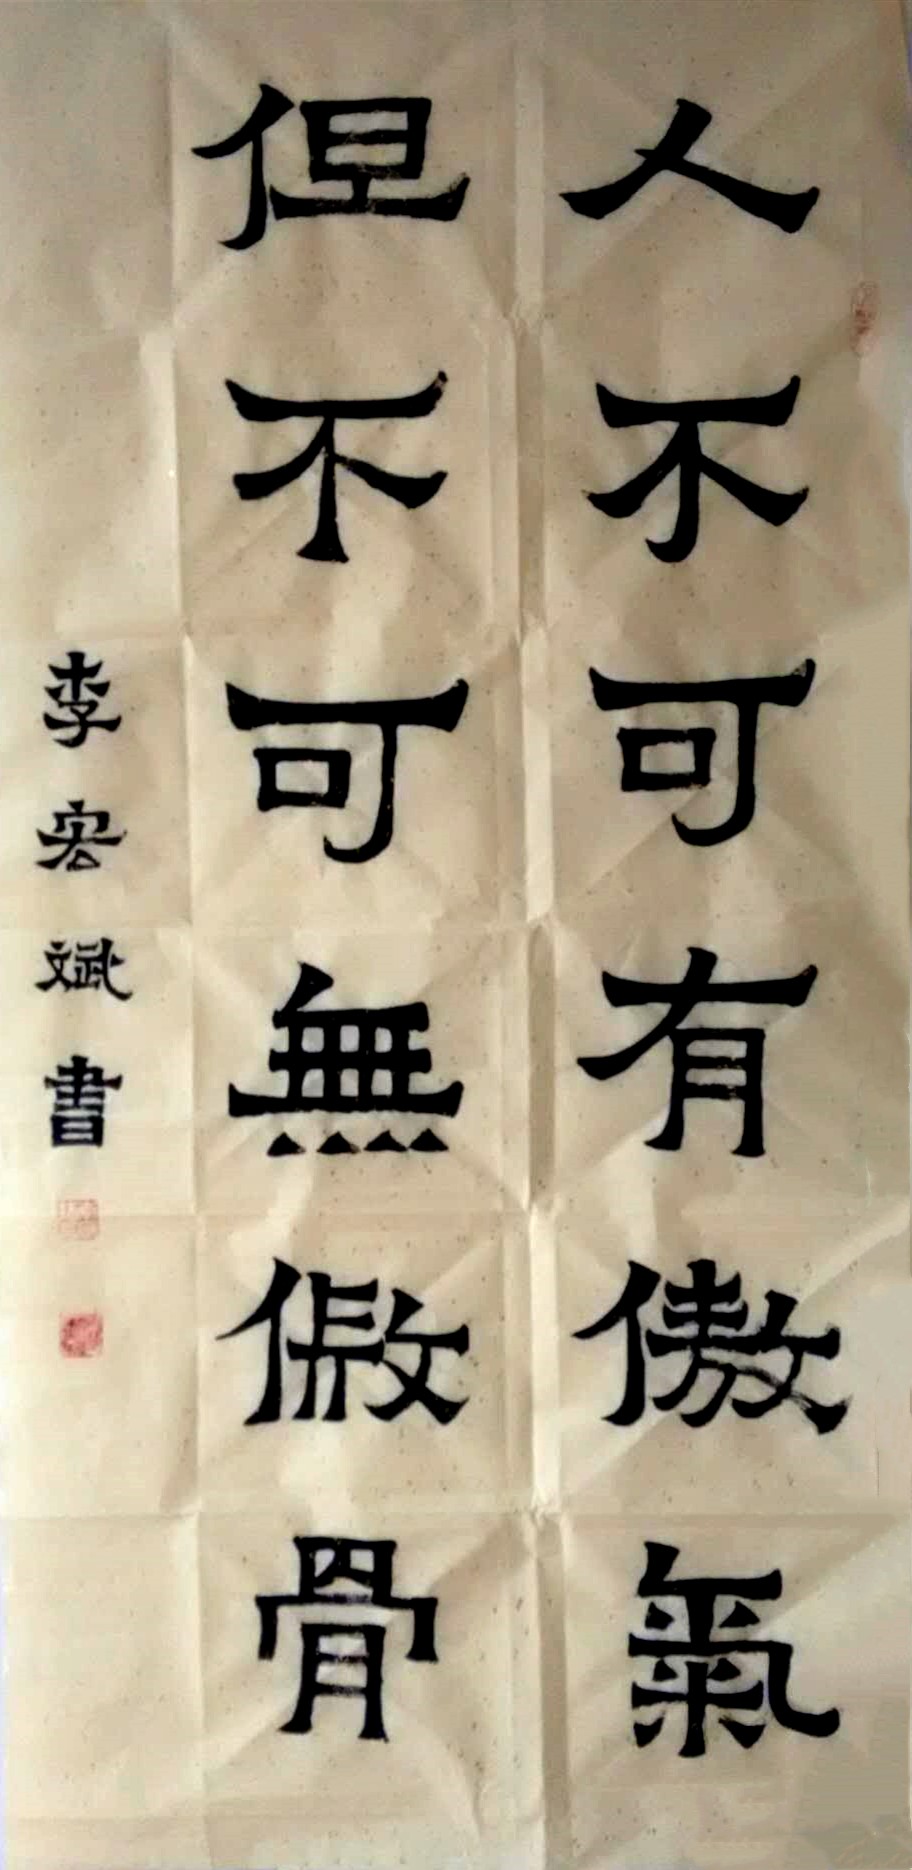 人不可有傲氣
但不可無傲骨
李宏斌書